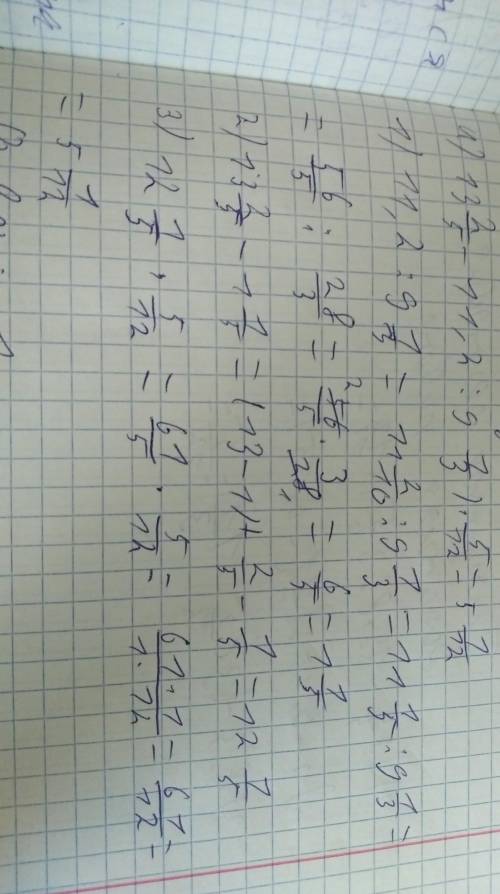 а) 13 2/5 - 11,2 : 9 1/3) · 5/12 = 5 1/12
1) 11,2 : 9 1/3 = 11 2/10 : 9 1/3 = 11 1/5 : 9 1/3 =
= 56/5 : 28/3 = 56/5 · 3/28 = 6/5 = 1 1/5
2) 13 2/5 - 1 1/5 = (13 - 1) + 2/5 - 1/5 = 12 1/5
3) 12 1/5 · 5/12 = 61/5 · 5/12 = 61·1/1·12 = 61/12 =
= 5 1/12